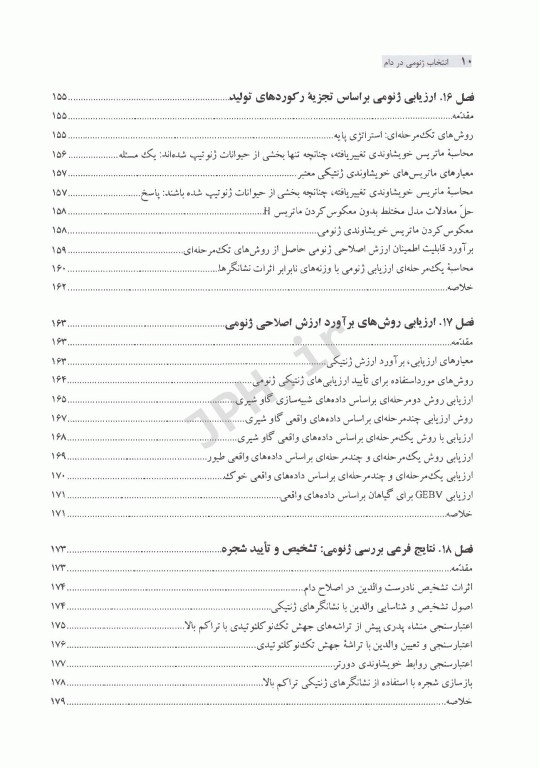 ۱۰ انتخاب ژنومی در دام
فصل ۱۶. ارزیابی ژنومی براساس تجزیۀ رکوردهای تولید ۱۵۵
مقدّمه ۱۵۵
روش‌های تک‌مرحله‌ای: استراتژی پایه ۱۵۵
محاسبۀ ماتریس خویشاوندی تغییریافته، چنانچه تنها بخشی از حیوانات ژنوتیپ شده‌اند: یک مسئله ۱۵۶
معیارهای ماتریس‌های خویشاوندی ژنتیکی معتبر ۱۵۷
محاسبۀ ماتریس خویشاوندی تغییریافته، چنانچه بخشی از حیوانات ژنوتیپ شده باشند: پاسخ ۱۵۷
حلّ معادلات مدل مختلط بدون معکوس‌کردن ماتریس H ۱۵۸
معکوس‌کردن ماتریس خویشاوندی ژنومی ۱۵۸
برآورد قابلیت اطمینان ارزش اصلاحی ژنومی حاصل از روش‌های تک‌مرحله‌ای ۱۵۹
محاسبۀ یک‌مرحله‌ای ارزیابی ژنومی با وزنه‌های نابرابر اثرات نشانگرها ۱۶۰
خلاصه ۱۶۲
فصل ۱۷. ارزیابی روش‌های برآورد ارزش اصلاحی ژنومی ۱۶۳
مقدّمه ۱۶۳
معیارهای ارزیابی، برآورد ارزش ژنتیکی ۱۶۳
روش‌های مورداستفاده برای تأیید ارزیابی‌های ژنتیکی ژنومی ۱۶۴
ارزیابی روش دومرحله‌ای براساس داده‌های شبیه‌سازی گاو شیری ۱۶۵
روش ارزیابی چندمرحله‌ای براساس داده‌های واقعی گاو شیری ۱۶۷
ارزیابی با روش یک‌مرحله‌ای براساس داده‌های واقعی گاو شیری ۱۶۸
ارزیابی روش یک‌مرحله‌ای و چندمرحله‌ای براساس داده‌های واقعی طیور ۱۶۹
ارزیابی یک‌مرحله‌ای و چندمرحله‌ای براساس داده‌های واقعی خوک ۱۷۰
ارزیابی GEBV برای گیاهان براساس داده‌های واقعی ۱۷۱
خلاصه ۱۷۱
فصل ۱۸. نتایج فرعی بررسی ژنومی: تشخیص و تأیید شجره ۱۷۳
مقدّمه ۱۷۳
اثرات تشخیص نادرست والدین در اصلاح دام ۱۷۴
اصول تشخیص و شناسایی والدین با نشانگرهای ژنتیکی ۱۷۴
اعتبارسنجی منشاء پدری پیش از تراشه‌های جهش تک‌نوکلئوتیدی با تراکم بالا ۱۷۵
اعتبارسنجی و تعیین والدین با تراشۀ جهش تک‌نوکلئوتیدی ۱۷۶
اعتبارسنجی روابط خویشاوندی دورتر ۱۷۷
بازسازی شجره با استفاده از نشانگرهای ژنتیکی تراکم بالا ۱۷۸
خلاصه ۱۷۹
JPH.ir